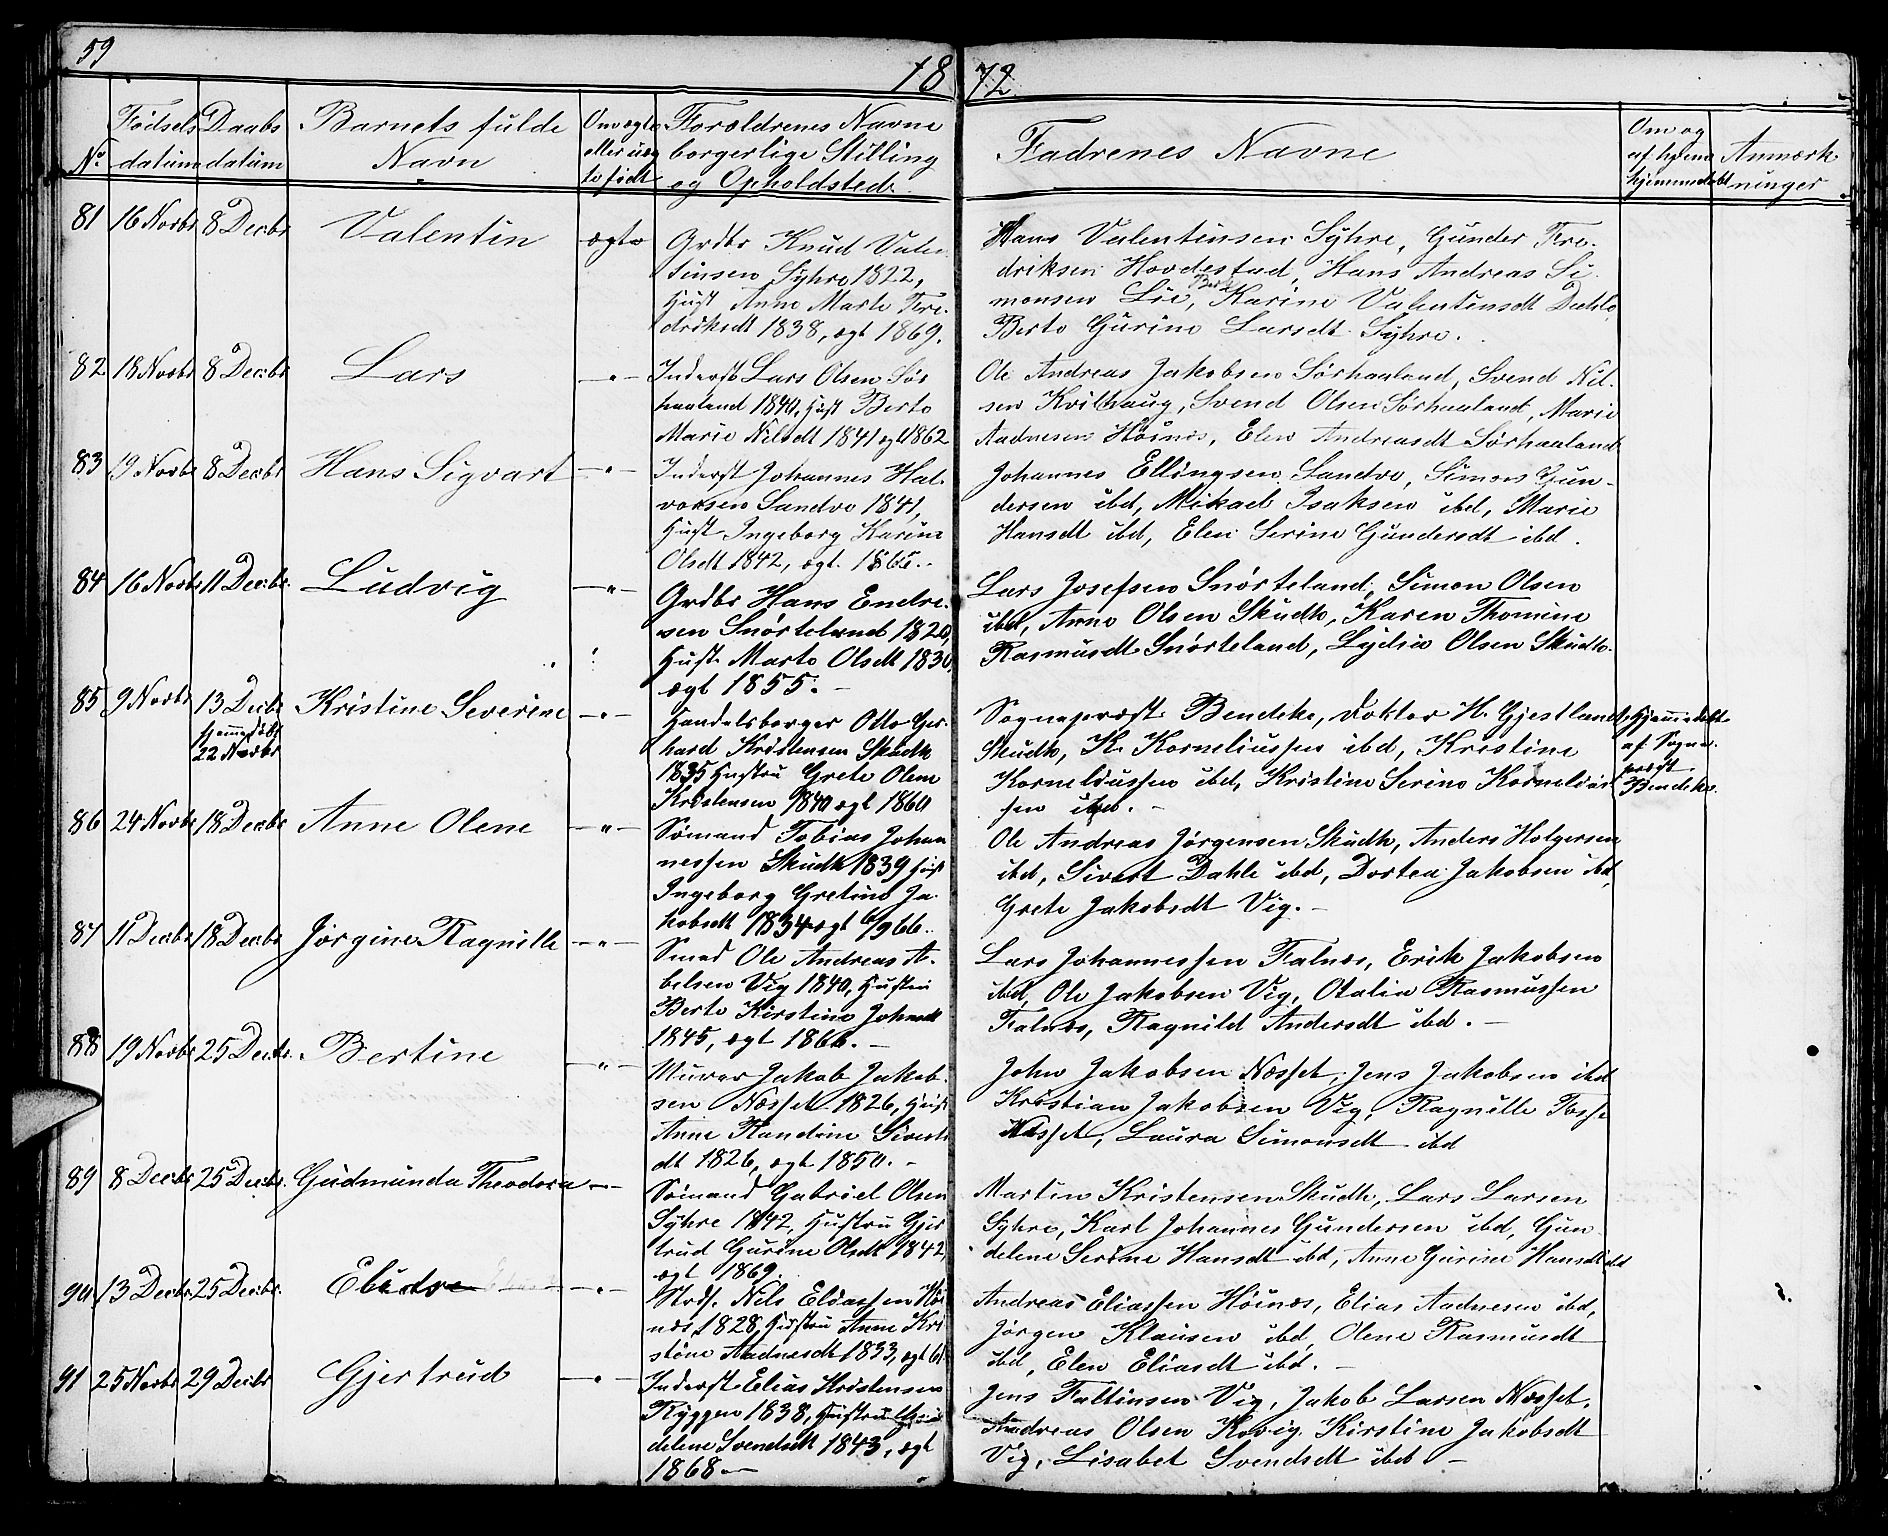 59
1872
No.
Fødsels datum
Daabs datum
Barnets fulde Navn
Om ægte eller uægte født
Forældrenes Navne borgerlige Stilling og Opholdsted
Fadrenes Navne
Om og af hvem hjemmedøbt
Anmærkninger
81 16 Novbr 8 Decbr Valentin ægte
Grdbr Knud Valen-
tinsen Syhre 1822,
Hust Anne Marte Fre-
driksdt 1838, ægt 1869.
Hans Valentinsen Syhre, Gunder Fre-
driksen Hovdestad, Hans Andreas Si-
monsen Lie, Karine Valentinsdt Dahle
Berte Gurine Larsdt Syhre.
82 18 Novbr 8 Decbr Lars -"-
Inderst Lars Olsen Sør-
haaland 1840, Hust Berte
Marie Nilsdt 1841 ægt 1862
Ole Andreas Jakobsen Sørhaaland, Svend Nil-
sen Kvilhaug, Svend Olsen Sørhaaland, Marie
Aadnesen Høines, Elen Andreasdt Sørhaaland
83 19 Novbr 8 Decbr Hans Sigvart -"-
Inderst Johannes Hal-
vorsen Sandve 1841,
Hust Ingeborg Karine
Olsdt 1842, ægt. 1865.
Johannes Ellingsen Sandve, Simon Gun-
dersen ibd, Mikael Isaksen ibd, Marie
Hansdt ibd, Elen Serine Gundersdt ibd.
84 16 Novbr 11 Decbr Ludvig -"-
Grdbr Hans Endre-
sen Snørteland 1820,
Hust. Marte Olsdt 1830,
ægt 1855. -
Lars Josefsen Snørteland, Simon Olsen
ibd, Anne Olsen Skudh, Karen Thomine
Rasmusdt Snørteland, Lydia Olsen Skudh.
85 9 Novbr 13 Decbr Kristine Severine -"-
Hjemedøbt
22 Novbr
Handelsborger Otto Ger-
hard Kristensen Skudh
1835 Hustru Grete Olene
Kristensen 1840 ægt 1860
Sogneprest Bendeke, Doktor H. Gjestland
Skudh, K. Korneliussen ibd, Kristine
Korneliussen ibd, Kristine Serine Kornelius-
sen ibd. -
Hjemedøbt
af Sogne-
prest
Bendeke.
86 24 Novbr 18 Decbr Anne Olene -"-
Sømand Tobias Johan-
nessen Skudh 1839 Hust
Ingeborg Gretine Ja-
kobsdt 1834 ægt 6/9 66.
Ole Andreas Jørgensen Skudh, Anders Holgersen
ibd, Sivert Dahle ibd, Dortea Jakobsen ibd,
Grete Jakobsdt Vig. -
87 11 Decbr 18 Decbr Jørgine Ragnille -"-
Smed Ole Andreas A-
belsen Vig 1840, Hustru
Berte Kirstine Johnsdt
1845, ægt 1866. -
Lars Johannessen Falnes, Erik Jakobsen
ibd, Ole Jakobsen Vig, Otalia Rasmussen
Falnes, Ragnild Andersdt ibd. -
88 19 Novbr 25 Decbr. Bertine -"-
Murer Jakob Jakob-
sen Næsset 1826, Hust
Anne Randine Siverts-
dt 1826, ægt 1850. -
John Jakobsen Næsset, Jens Jakobsen ibd
Kristian Jakobsen Vig, Ragnille
Næsset, Laura Simonsdt ibd
89 8 Decbr 25 Decbr. Gudmunda Theodora -"-
Sømand Gabriel Olsen
Syhre 1842, Hustru Gjer-
trud Gurine Olsdt 1842,
ægt 1869.
Martin Kristensen Skudh, Lars Larsen
Syhre, Karl Johannes Gundersen ibd, Gun-
delene Serine Hansdt ibd, Anne Gurine Hansdt ibd
90 13 Decbr 25 Decbr. -"-
Nils Eliassen Høi-
nes, 1828, Hustru Anne Kri-
stine Aadnesdt 1833, ægt 61.
Andreas Eliassen Høines, Elias Aadnesen ibd,
Jørgen Klausen ibd, Olene Rasmusdt
ibd, Elen Eliasdt ibd. -
91 25 Novbr 29 Decbr Gjertrud -"-
Inderst Elias Kristensen
Ryggen 1838, Hustru
delene Svendsdt 1843, ægt
1868 -
Jens Faltinsen Vig, Jakob Larsen Næsset,
Andreas Olsen Kvsig, Kirstine Jakobsdt
Vig, Lisabet Svendsdt ibd -